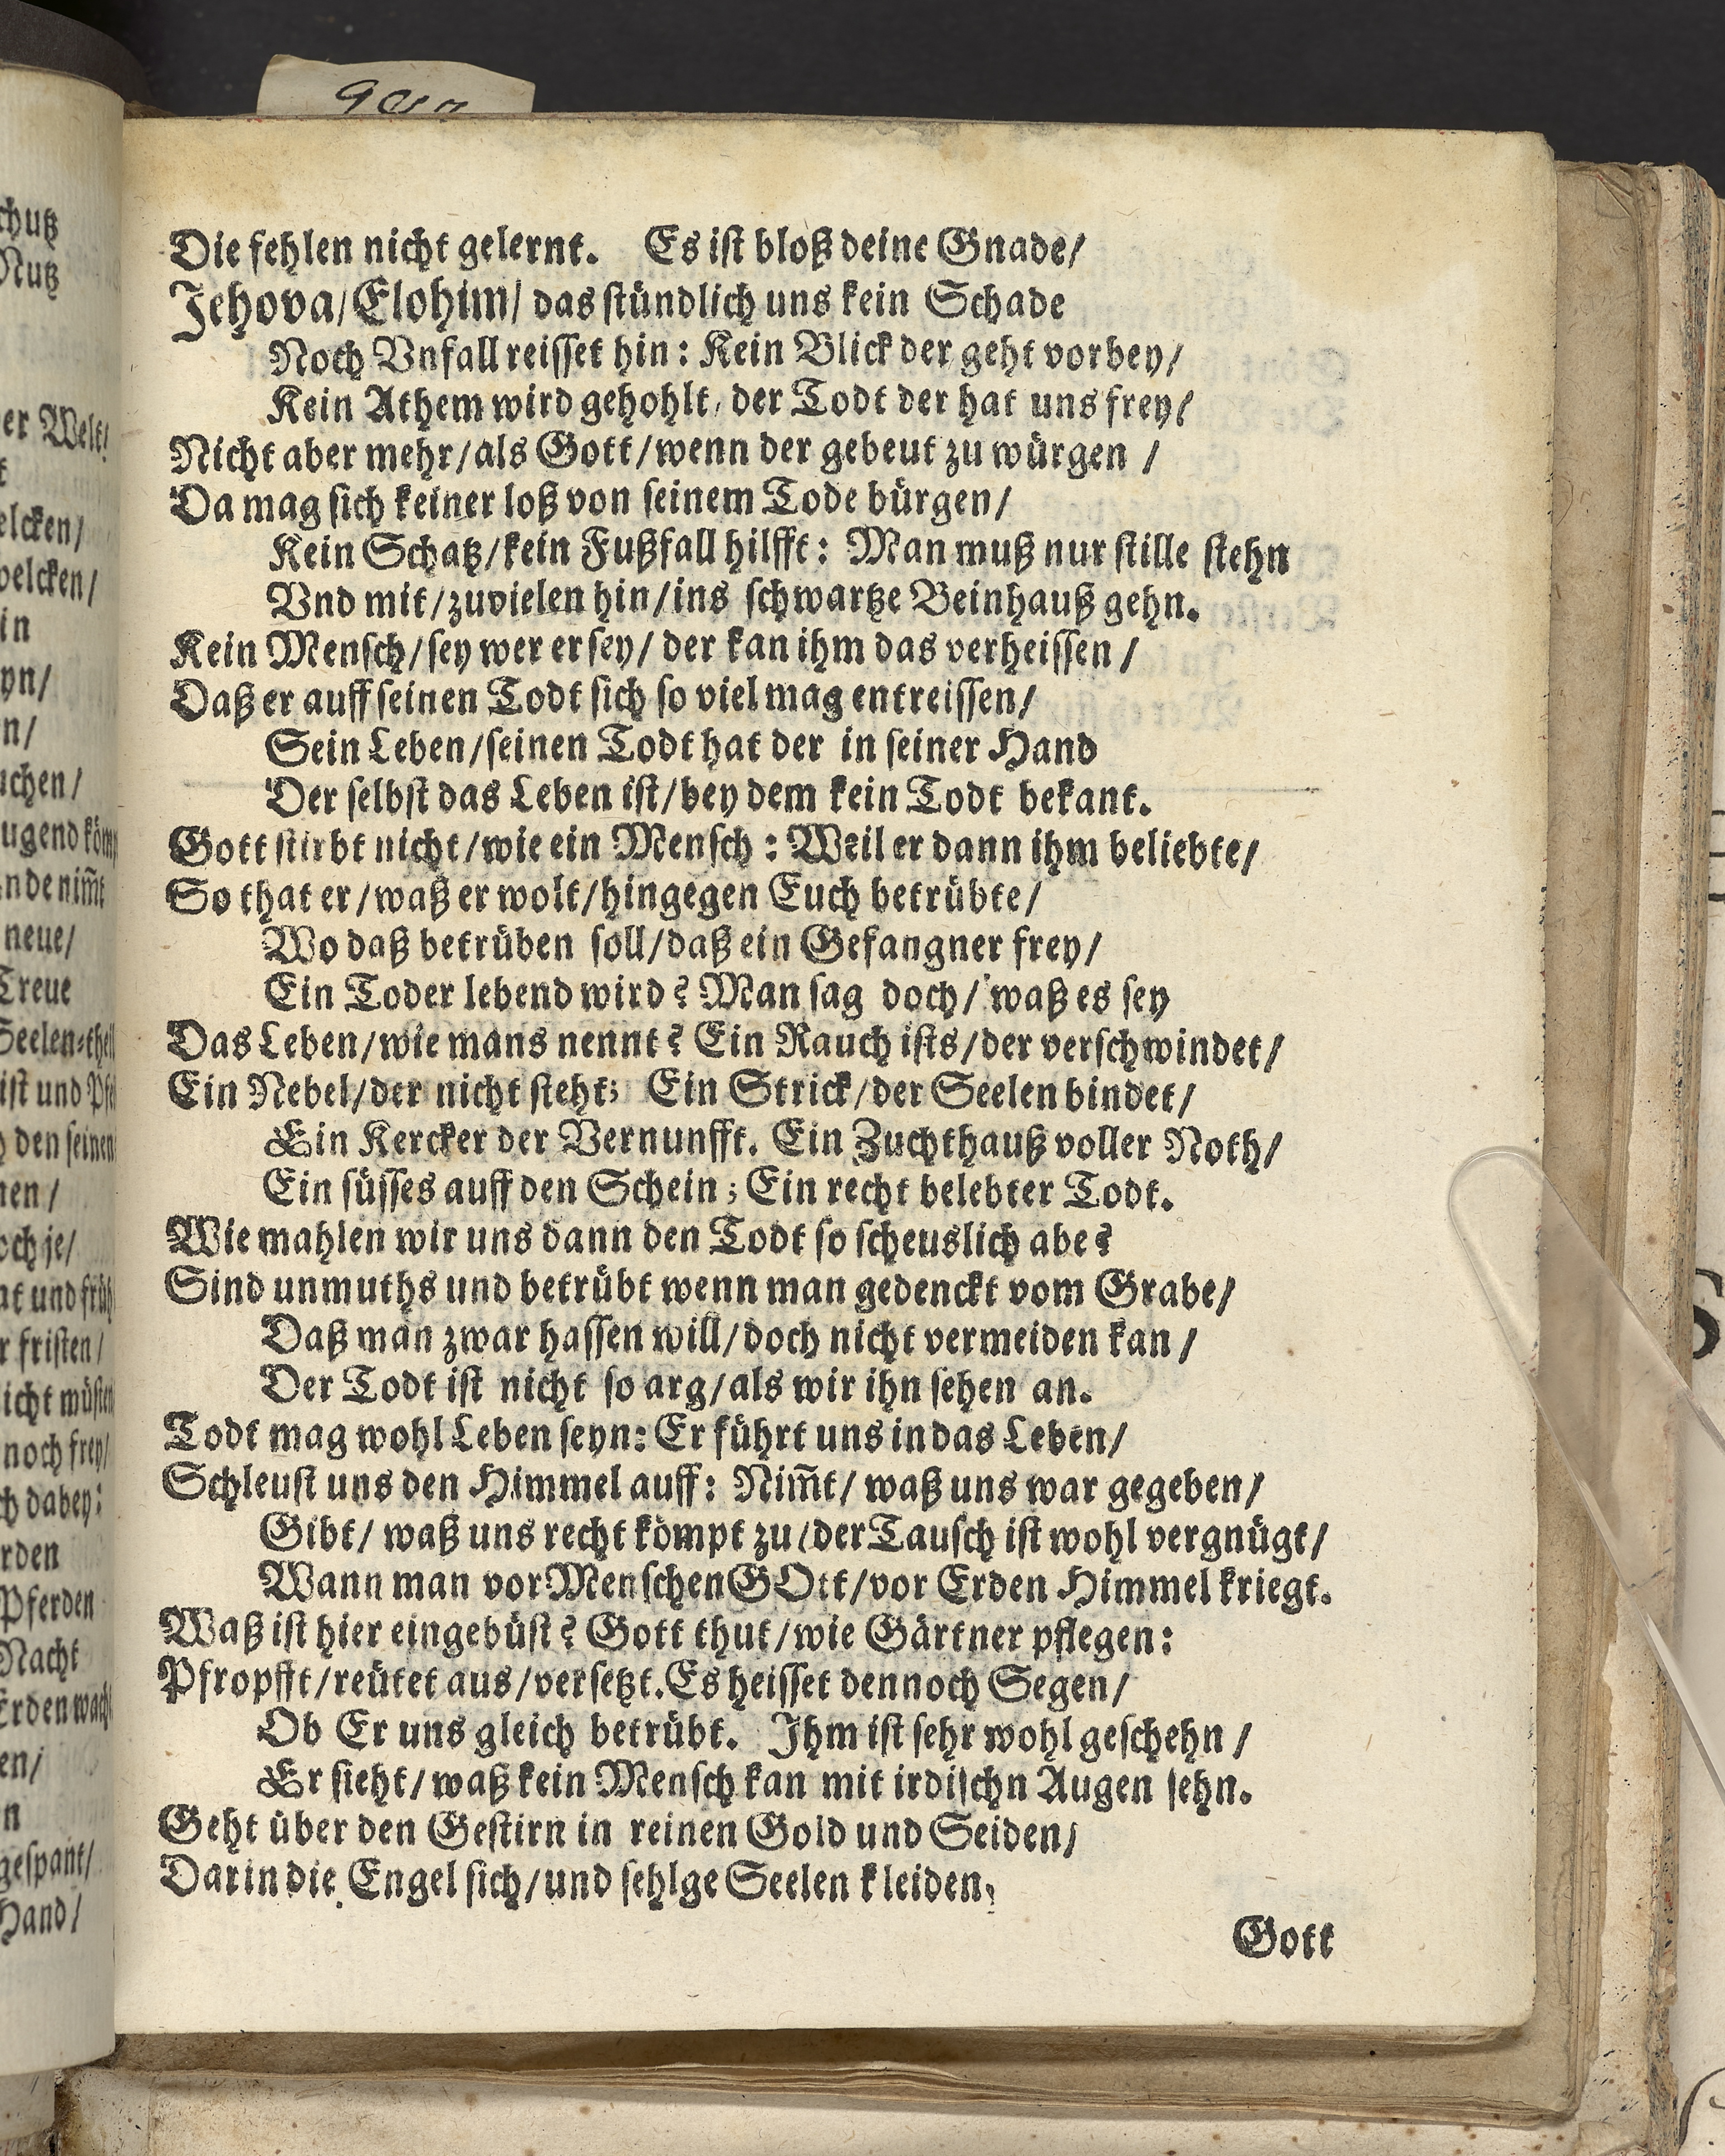 Die fehlen nicht gelernt. Es iſt bloß deine Gnade/
Jehova/Elohim/ das ſtündlich uns kein Schade
Noch Vnfall reiſſet hin: Kein Blick der geht vorbey/
Kein Athem wird gehohlt, der Todt der hat uns frey/
Nicht aber mehr/als Gott/wenn der gebeut zu würgen /
Da mag ſich keiner loß von ſeinem Tode bürgen/
Kein Schatz/kein Fußfall hilfft: Man muß nur ſtille ſtehn
Vnd mit/zuvielen hin/ins ſchwartze Beinhauß gehn.
Kein Menſch/ſey wer er ſey/ der kan ihm das verheiſſen /
Daß er auff ſeinen Todt ſich ſo viel mag entreiſſen/
Sein Leben/ſeinen Todt hat der in ſeiner Hand
Der ſelbſt das Leben iſt/bey dem kein Todt bekant.
Gott ſtirbt nicht/wie ein Menſch: Weil er dann ihm beliebte/
So that er/waß er wolt/hingegen Euch betrübte/
Wo daß betrüben ſoll/daß ein Gefangner frey/
Ein Toder lebend wird? Man ſag doch/ waß es ſey
Das Leben/wie mans nennt? Ein Rauch iſts/der verſchwindet/
Ein Nebel/der nicht ſteht; Ein Strick/der Seelen bindet/
Ein Kercker der Vernunfft. Ein Zuchthauß voller Noth/
Ein ſüſſes auff den Schein; Ein recht belebter Todt.
Wie mahlen wir uns dann den Todt ſo ſcheuslich abe?
Sind unmuths und betrübt wenn man gedenckt vom Grabe/
Daß man zwar haſſen will/doch nicht vermeiden kan /
Der Todt iſt nicht ſo arg/als wir ihn ſehen an.
Todt mag wohl Leben ſeyn: Er führt uns in das Leben/
Schleuſt uns den Himmel auff: Nim̃t/ waß uns war gegeben/
Gibt/ waß uns recht kömpt zu/der Tauſch iſt wohl vergnügt/
Wann man vor Menſchen GOtt/vor Erden Himmel kriegt.
Waß iſt hier eingebüſt? Gott thut/wie Gärtner pflegen:
Pfropfft/reütet aus/verſetzt. Es heiſſet dennoch Segen/
Ob Er uns gleich betrübt. Ihm iſt ſehr wohl geſchehn /
Er ſieht/waß kein Menſch kan mit irdiſchn Augen ſehn.
Geht über den Geſtirn in reinen Gold und Seiden/
Darin die Engel ſich/und ſehlge Seelen kleiden,
Gott